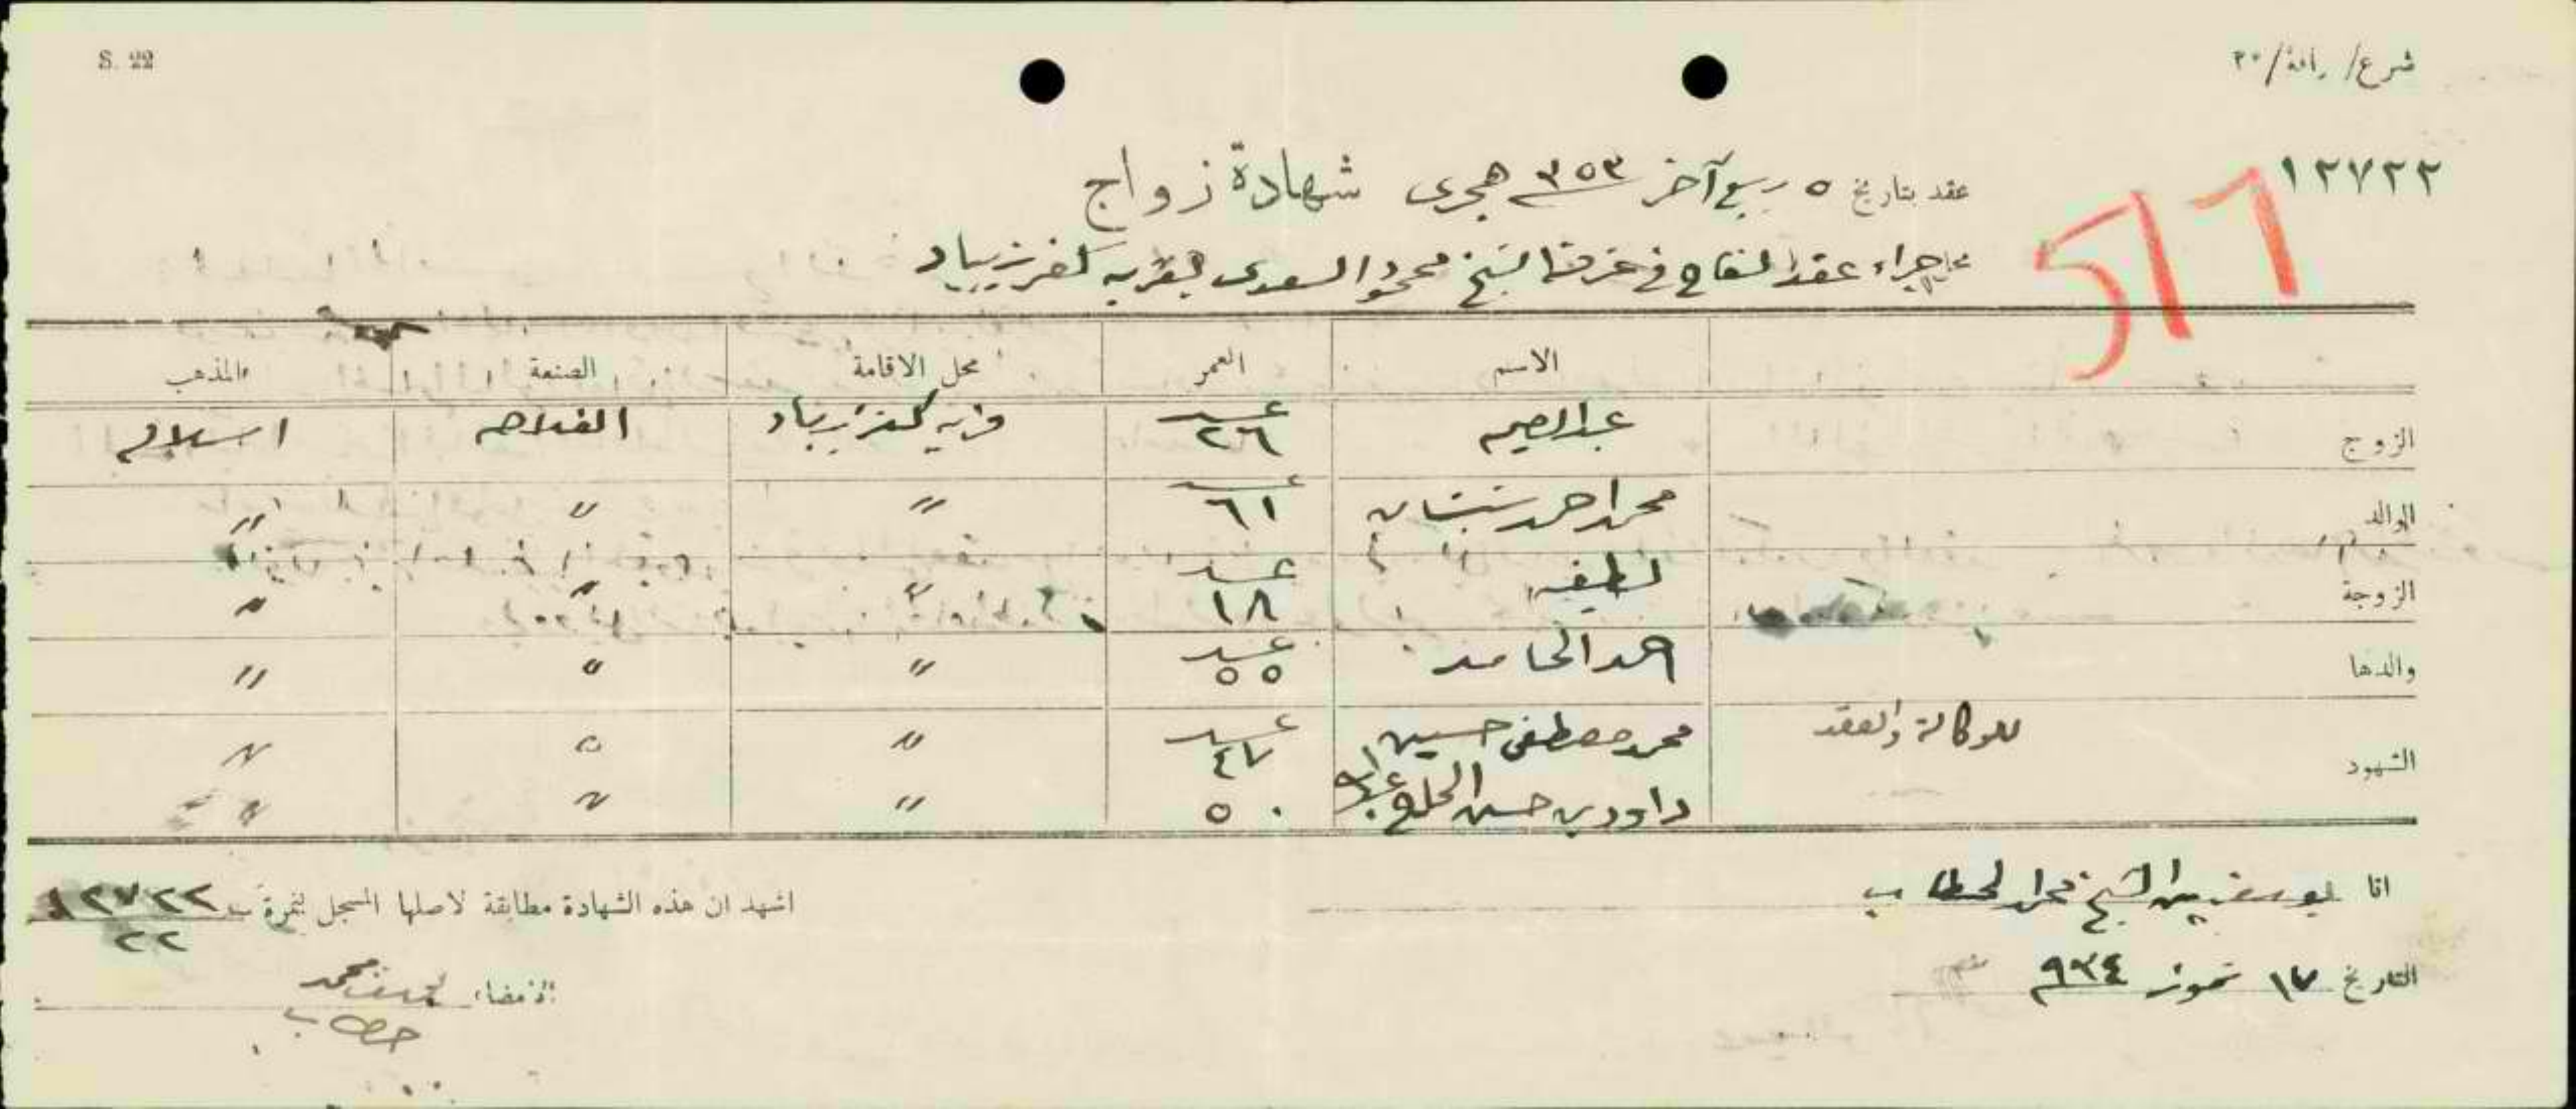 S. 22
شرع/رافة/٣٠
١٢٧٢٢
517
عقد بتاريخ ٥ ربيع آخر ٣٥٣ هجرى شهادة زواج
محل اجراء عقد النكاح في غرفة الشيخ محمود السعدى بقرية كفرزيباد
الاسم العمر محل الاقامة الصنعة المذهب
الزوج عبدالرحيم ٢٦ قرية كفرزيباد الفلاحه اسلام
الوالد محمد احمد ٦١ " " "
الزوجة لطيفه ١٨ " " "
والدها احمد الحامد ٥٥ " " "
الشهود للوكالة والعقد محمد مصطفى حسين ٤٧ " " "
داود بن حسن الحاج ٥٠ " " "
انا يوسف بن الشيخ محمد الحطاب اشهد ان هذه الشهادة مطابقة لاصلها المسجل بنمرة ١٢٧٢٢
٢٢
التاريخ ١٧ تموز ٩٣٤ الامضاء يوسف محمد
حطاب